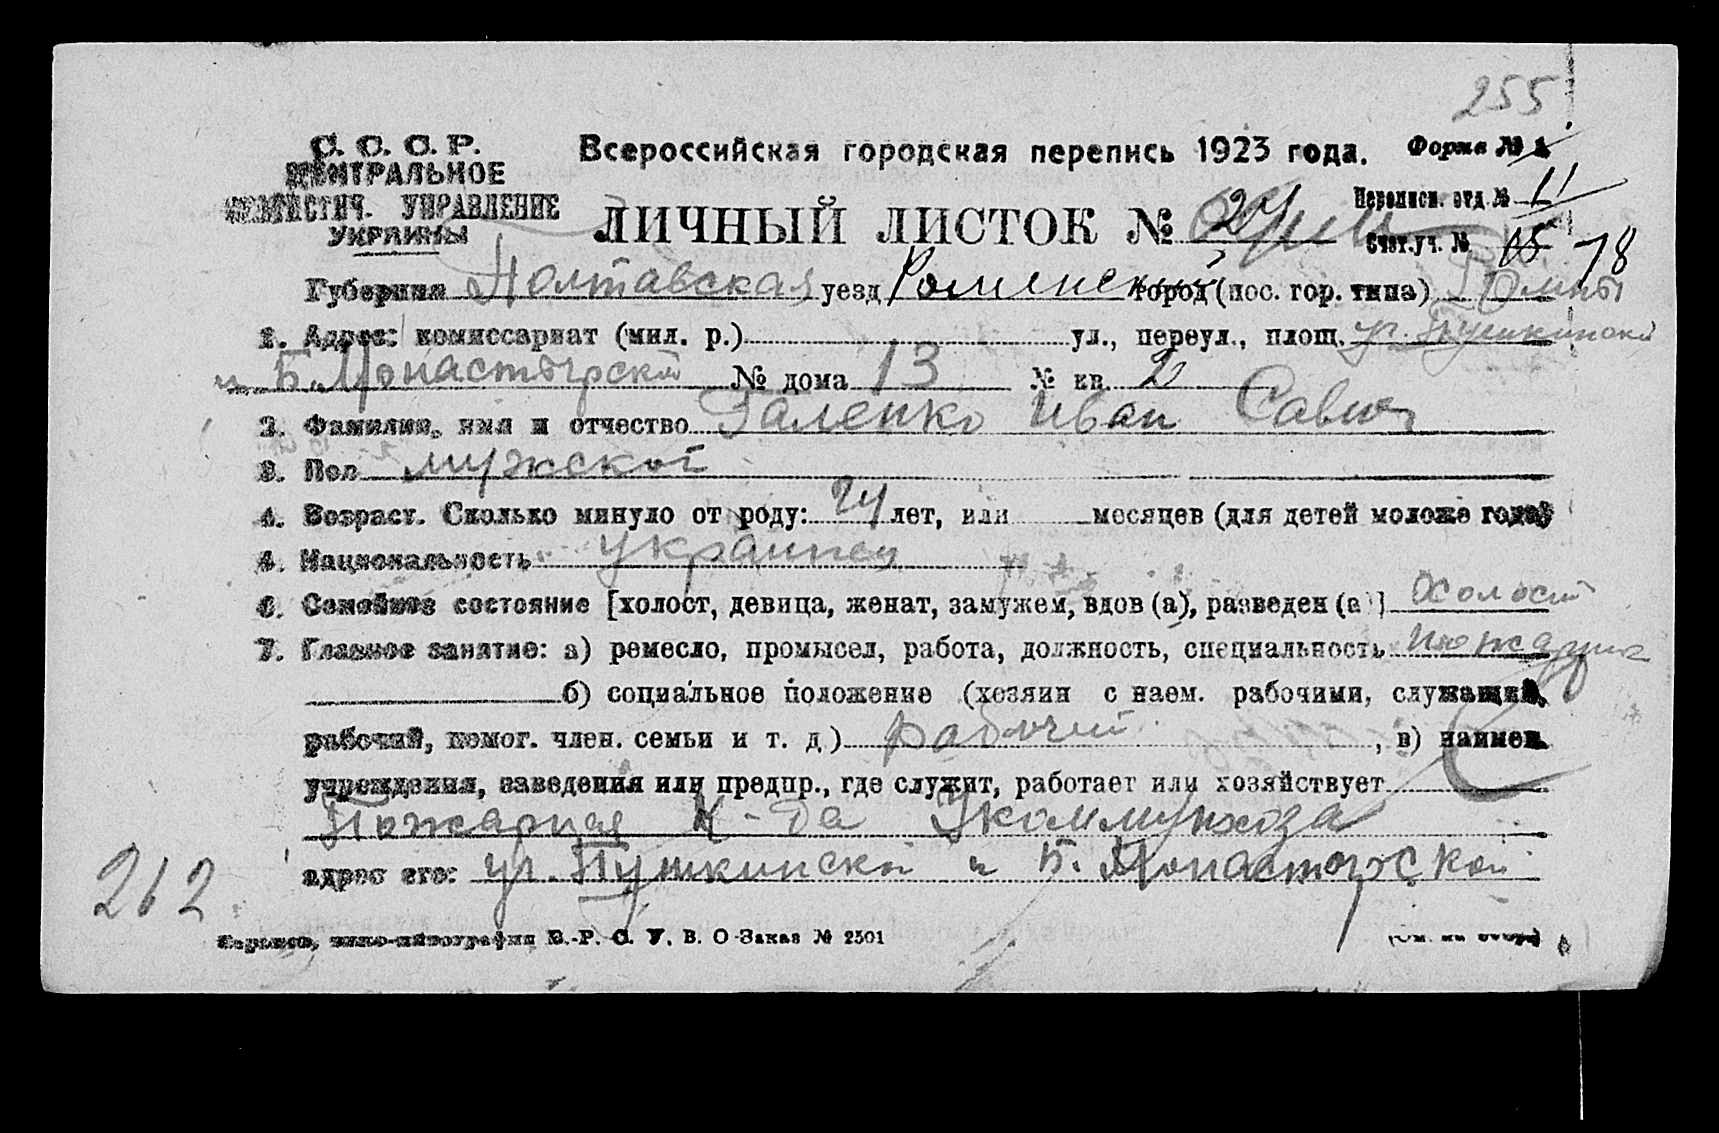 255
С. С. С. Р.
ЦЕНТРАЛЬНОЕ
СТАТИСТИЧ. УПРАВЛЕНИЕ
УКРАИНЫ
Всероссийская городская перепись 1923 года. Форма № 1
ЛИЧНЫЙ ЛИСТОК № 24
Переписн. отд. № 11
Счет. уч. № 15 78
Губерния Полтавская уезд Роменский город (пос. гор. типа) Ромны
1. Адрес: комиссариат (мил. р.) ул., переул., площ. уг. Пушкинской
и Б. Монастырской № дома 13 № кв. 2
2. Фамилия, имя и отчество Галенко Иван Савич
3. Пол мужской
4. Возраст. Сколько минуло от роду: 24 лет, или месяцев (для детей моложе года)
5. Национальность украинец
6. Семейное состояние [холост, девица, женат, замужем, вдов (а), разведен (а)] Холостой
7. Главное занятие: а) ремесло, промысел, работа, должность, специальность пожарник
б) социальное положение (хозяин с наем. рабочими, служащий,
рабочий, помог. член. семьи и т. д.) рабочий, в) наимен.
учреждения, заведения или предпр., где служит, работает или хозяйствует
Пожарная К-да Укоммунхоза
адрес его: уг. Пушкинской и Б. Монастырской
262
Харьков, типо-литография В.-Р. С. У. В. О-Заказ № 2501
(См. на обор.)